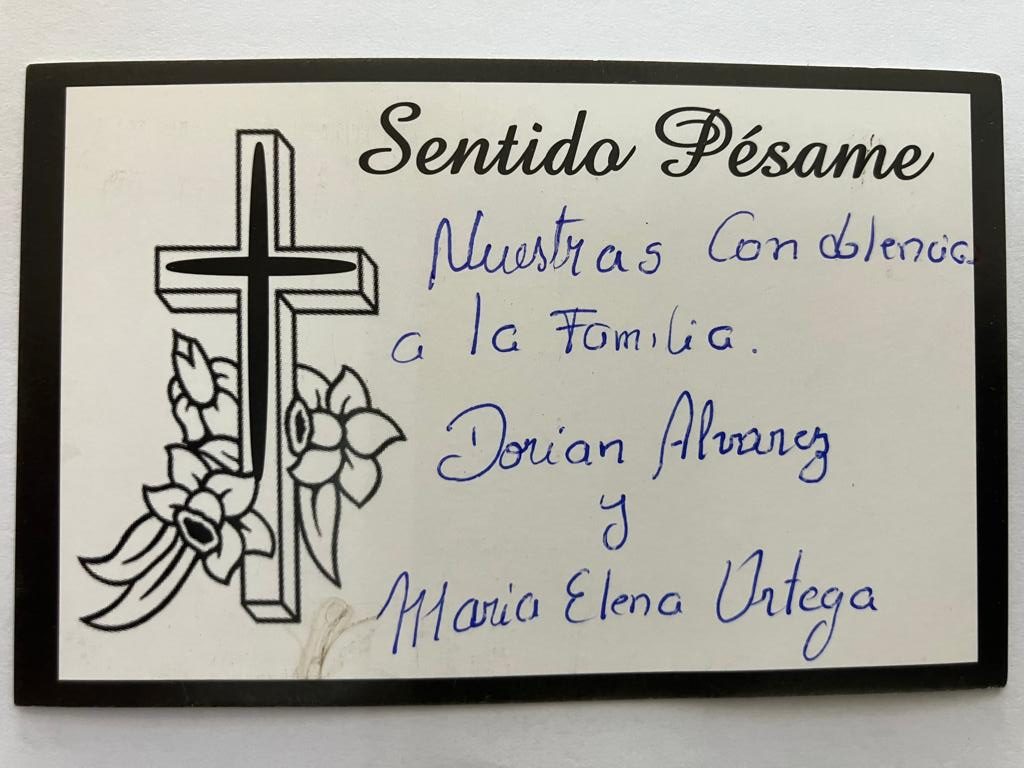 Sentido Pésame
Nuestras Condolencias
a la Familia.
Dorian Alvarez
y
Maria Elena Ortega